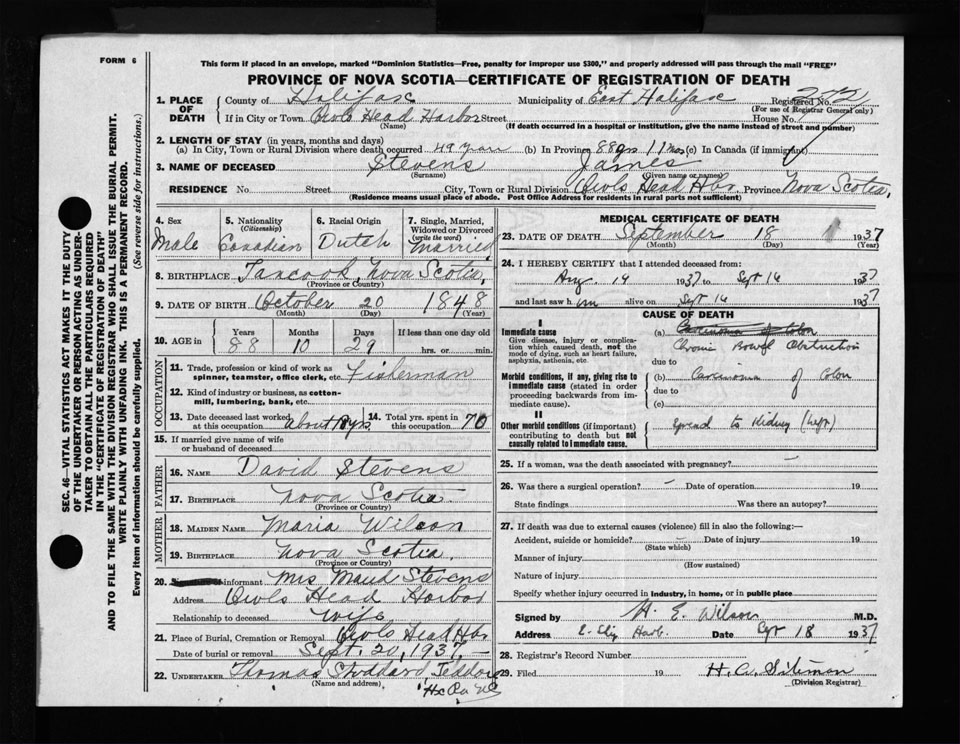 FORM 6
This form if placed in an envelope, marked "Dominion Statistics—Free, penalty for improper use $300," and properly addressed will pass through the mail "FREE"
PROVINCE OF NOVA SCOTIA—CERTIFICATE OF REGISTRATION OF DEATH
1. PLACE OF DEATH
County of Halifax Municipality of East Halifax Registered No.
(For use of Registrar General only)
If in City or Town Owls Head Harbor Street House No.
(Name) (If death occurred in a hospital or institution, give the name instead of street and number)
2. LENGTH OF STAY (in years, months and days)
(a) In City, Town or Rural Division where death occurred 49 years (b) In Province 88 yrs 11 mos (c) In Canada (if immigrant)
3. NAME OF DECEASED Stevens James
(Surname) (Given name or names)
RESIDENCE No Street City, Town or Rural Division Owls Head Hbr. Province Nova Scotia,
(Residence means usual place of abode. Post Office Address for residents in rural parts not sufficient)
4. Sex
Male
5. Nationality
(Citizenship)
Canadian
6. Racial Origin
Dutch
7. Single, Married, Widowed or Divorced
(write the word)
Married
8. BIRTHPLACE Tancook, Nova Scotia,
(Province or Country)
9. DATE OF BIRTH October 20 1848
(Month) (Day) (Year)
10. AGE in Years Months Days If less than one day old
88 10 29 hrs. or min.
OCCUPATION
11. Trade, profession or kind of work as spinner, teamster, office clerk, etc. Fisherman
12. Kind of industry or business, as cotton-mill, lumbering, bank, etc.
13. Date deceased last worked at this occupation About 18 yrs.
14. Total yrs. spent in this occupation 70
15. If married give name of wife or husband of deceased
FATHER
16. NAME David Stevens
17. BIRTHPLACE Nova Scotia.
(Province or Country)
MOTHER
18. MAIDEN NAME Maria Wilson
19. BIRTHPLACE Nova Scotia.
(Province or Country)
20. informant Mrs Maud Stevens
Address Owls Head Harbor
Relationship to deceased wife
21. Place of Burial, Cremation or Removal Owls Head Hbr
Date of burial or removal Sept. 20, 1937
22. UNDERTAKER Thomas Stoddard, Jeddore
(Name and address) Hx Co NS
MEDICAL CERTIFICATE OF DEATH
23. DATE OF DEATH September 18 1937
(Month) (Day) (Year)
24. I HEREBY CERTIFY that I attended deceased from:
Aug. 19 1937 to Sept 16 1937
and last saw him alive on Sept 16 1937
CAUSE OF DEATH
I
Immediate cause
Give disease, injury or complication which caused death, not the mode of dying, such as heart failure, asphyxia, asthenia, etc.
(a) Carcinoma of Colon
Chronic Bowel Obstruction
due to
Morbid conditions, if any, giving rise to immediate cause (stated in order proceeding backwards from immediate cause).
(b) Carcinoma of Colon
due to
(c)
II
Other morbid conditions (if important) contributing to death but not causally related to immediate cause.
Spread to Kidney (Left)
25. If a woman, was the death associated with pregnancy?
26. Was there a surgical operation? Date of operation 19
State findings Was there an autopsy?
27. If death was due to external causes (violence) fill in also the following:—
Accident, suicide or homicide? Date of injury 19
(State which)
Manner of injury
(How sustained)
Nature of injury
Specify whether injury occurred in industry, in home, or in public place
Signed by H. E. Wilson M.D.
Address Harb. Date Sept 18 1937
28. Registrar's Record Number
29. Filed 19 H. A.
(Division Registrar)
SEC. 46—VITAL STATISTICS ACT MAKES IT THE DUTY OF THE UNDERTAKER OR PERSON ACTING AS UNDERTAKER TO OBTAIN ALL THE PARTICULARS REQUIRED IN THE "CERTIFICATE OF REGISTRATION OF DEATH" AND TO FILE THE SAME WITH THE DIVISION REGISTRAR WHO SHALL ISSUE THE BURIAL PERMIT.
WRITE PLAINLY WITH UNFADING INK. THIS IS A PERMANENT RECORD.
Every item of information should be carefully supplied. (See reverse side for instructions.)